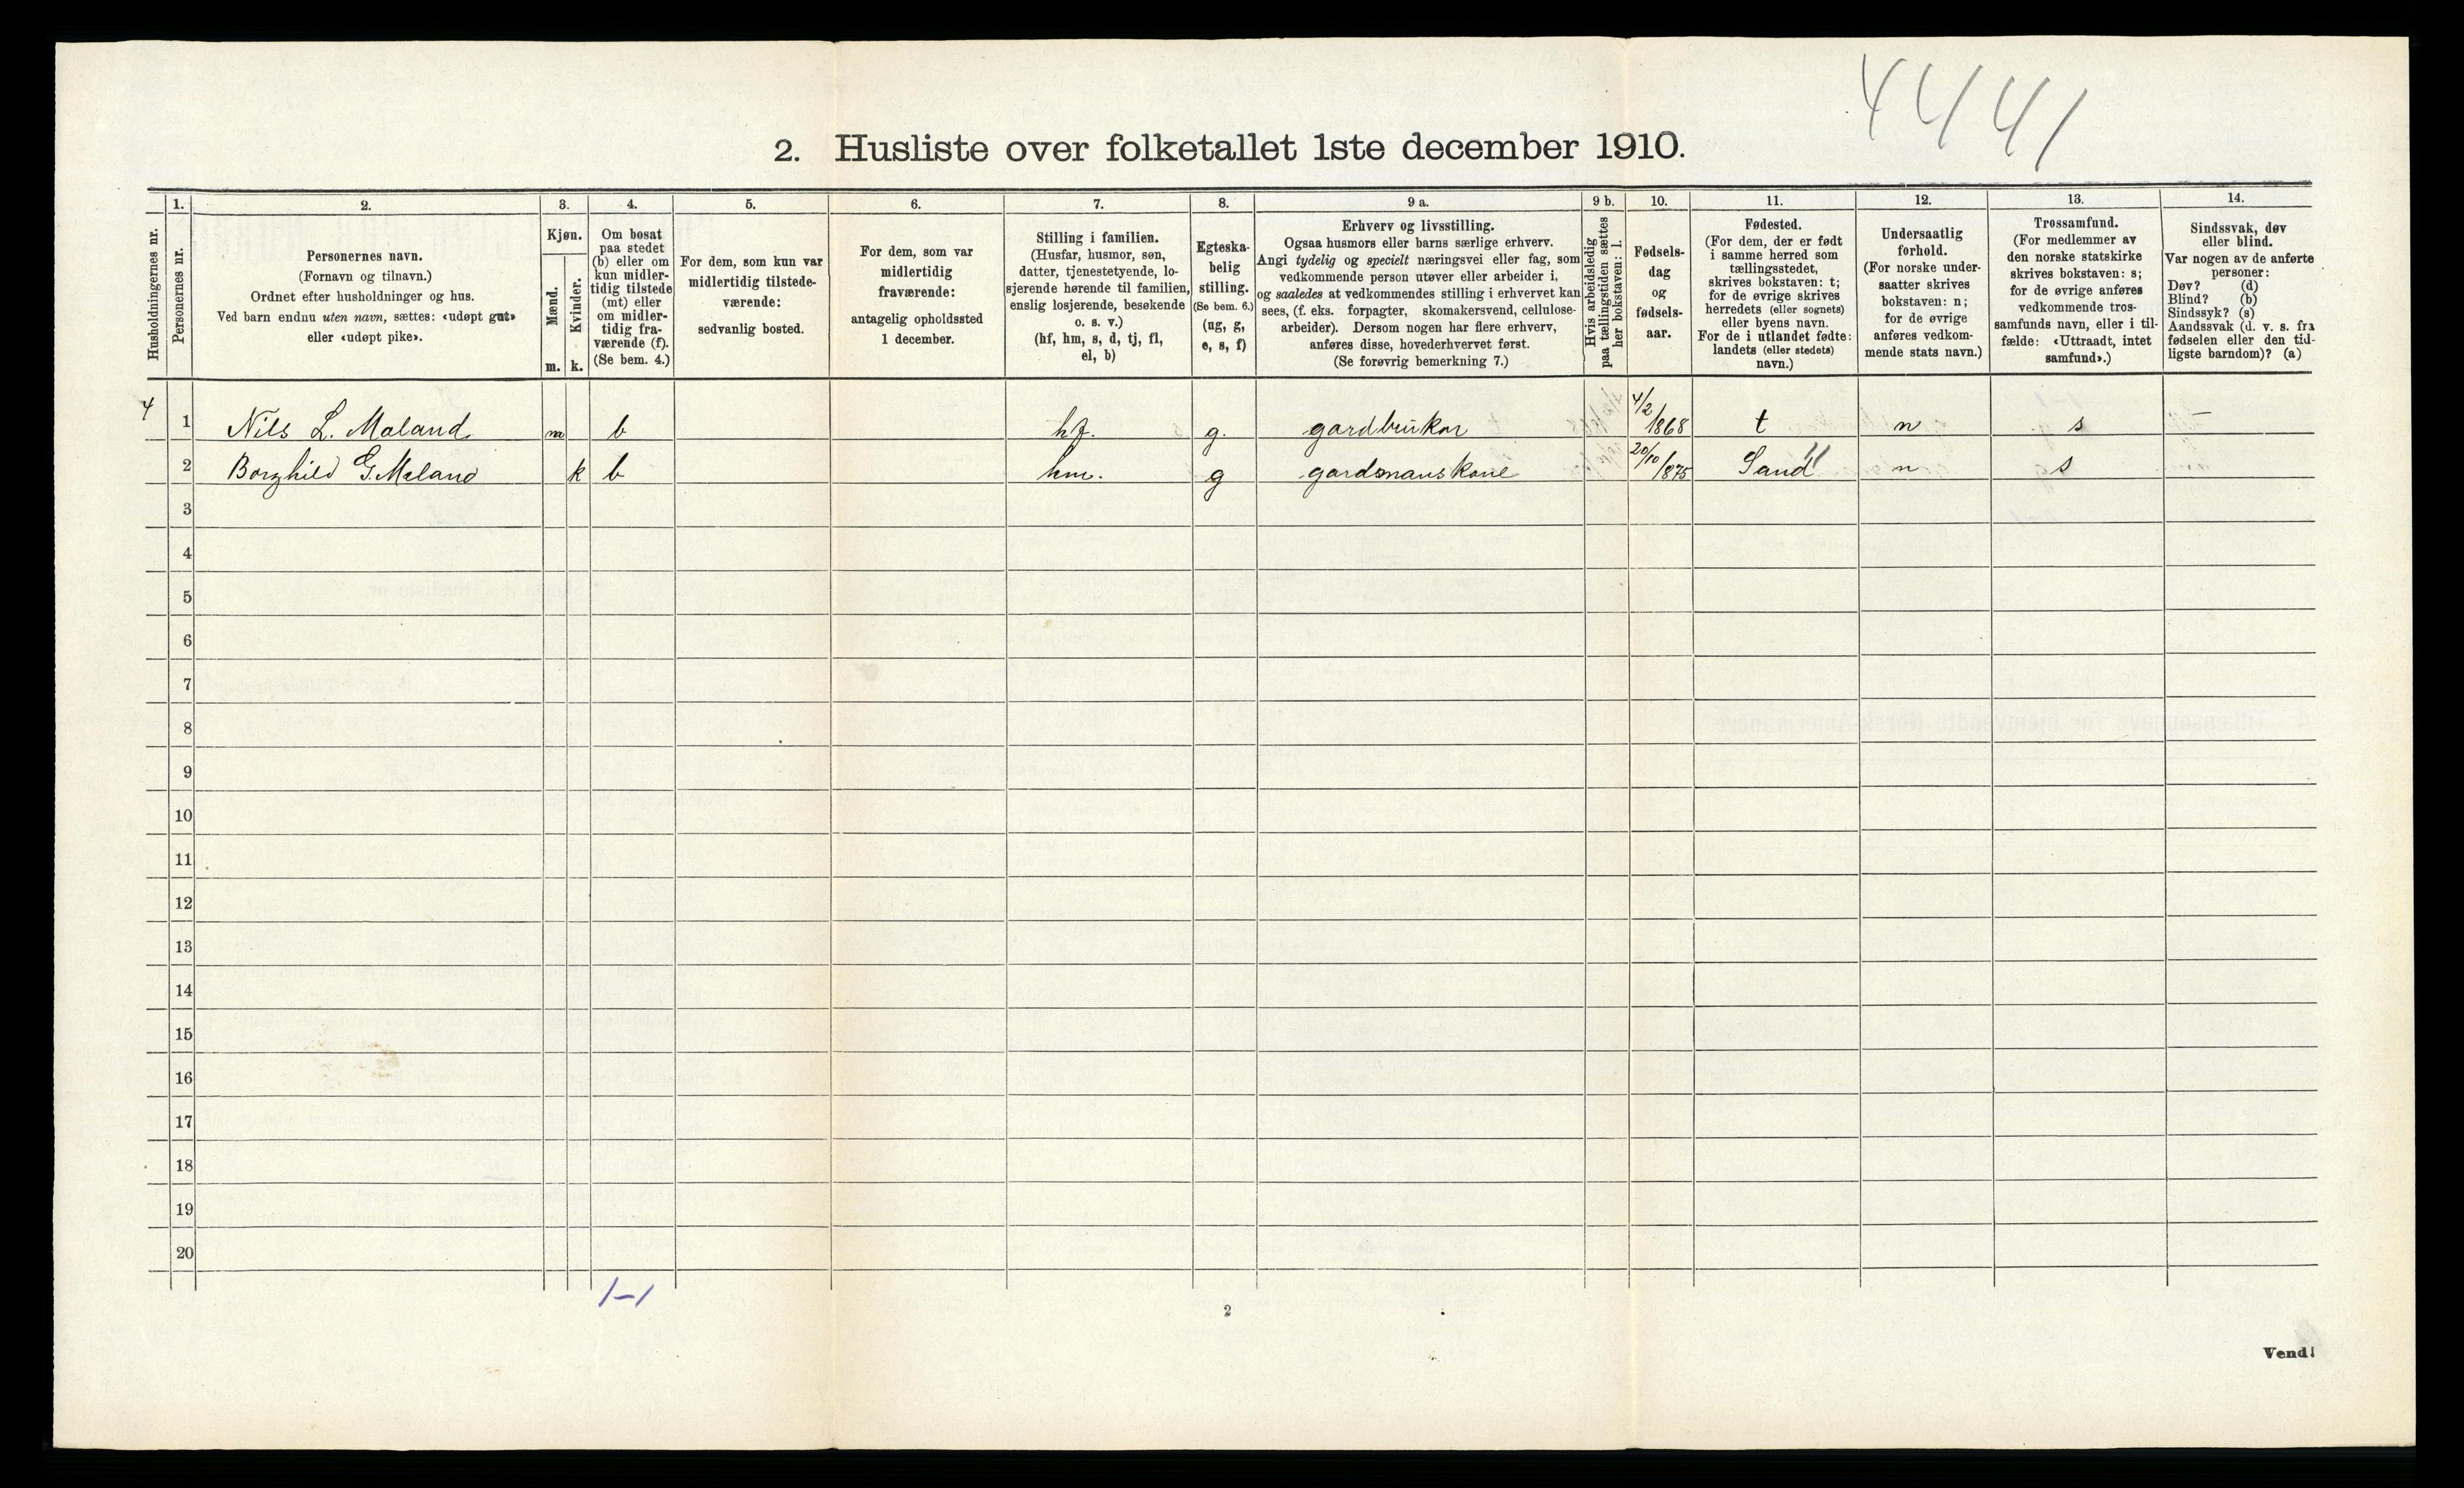 4441
2. Husliste over folketallet 1ste december 1910.
Husholdningernes nr.
1.
Personernes nr.
2.
Personernes navn.
(Fornavn og tilnavn.)
Ordnet efter husholdninger og hus.
Ved barn endnu uten navn, sættes: «udøpt gut»
eller «udøpt pike».
3.
Kjøn.
Mænd.
Kvinder.
m. k.
4.
Om bosat
paa stedet
(b) eller om
kun midler-
tidig tilstede
(mt) eller
om midler-
tidig fra-
værende (f).
(Se bem. 4.)
5.
For dem, som kun var
midlertidig tilstede-
værende:
sedvanlig bosted.
6.
For dem, som var
midlertidig
fraværende:
antagelig opholdssted
1 december.
7.
Stilling i familien.
(Husfar, husmor, søn,
datter, tjenestetyende, lo-
sjerende hørende til familien,
enslig losjerende, besøkende
o. s. v.)
(hf, hm, s, d, tj, fl,
el, b)
8.
Egteska-
belig
stilling.
(Se bem. 6.)
(ug, g,
e, s, f)
9 a.
Erhverv og livsstilling.
Ogsaa husmors eller barns særlige erhverv.
Angi tydelig og specielt næringsvei eller fag, som
vedkommende person utøver eller arbeider i,
og saaledes at vedkommendes stilling i erhvervet kan
sees, (f. eks. forpagter, skomakersvend, cellulose-
arbeider). Dersom nogen har flere erhverv,
anføres disse, hovederhvervet først.
(Se forøvrig bemerkning 7.)
9 b.
Hvis arbeidsledig
paa tællingstiden sættes
her bokstaven: l.
10.
Fødsels-
dag
og
fødsels-
aar.
11.
Fødested.
(For dem, der er født
i samme herred som
tællingsstedet,
skrives bokstaven: t;
for de øvrige skrives
herredets (eller sognets)
eller byens navn.
For de i utlandet fødte:
landets (eller stedets)
navn.)
12.
Undersaatlig
forhold.
(For norske under-
saatter skrives
bokstaven: n;
for de øvrige
anføres vedkom-
mende stats navn.)
13.
Trossamfund.
(For medlemmer av
den norske statskirke
skrives bokstaven: s;
for de øvrige anføres
vedkommende tros-
samfunds navn, eller i til-
fælde: «Uttraadt, intet
samfund».)
14.
Sindssvak, døv
eller blind.
Var nogen av de anførte
personer:
Døv? (d)
Blind? (b)
Sindssyk? (s)
Aandssvak (d. v. s. fra
fødselen eller den tid-
ligste barndom)? (a)
4 1 Nils L. Maland m b hf. g. gardbrukar 4/2 1868 t n s –
2 Borghild G. Maland k b hm. g gardmanskone 20/10 1875 Sand 11 n s
3
4
5
6
7
8
9
10
11
12
13
14
15
16
17
18
19
20
1–1
2
Vend!